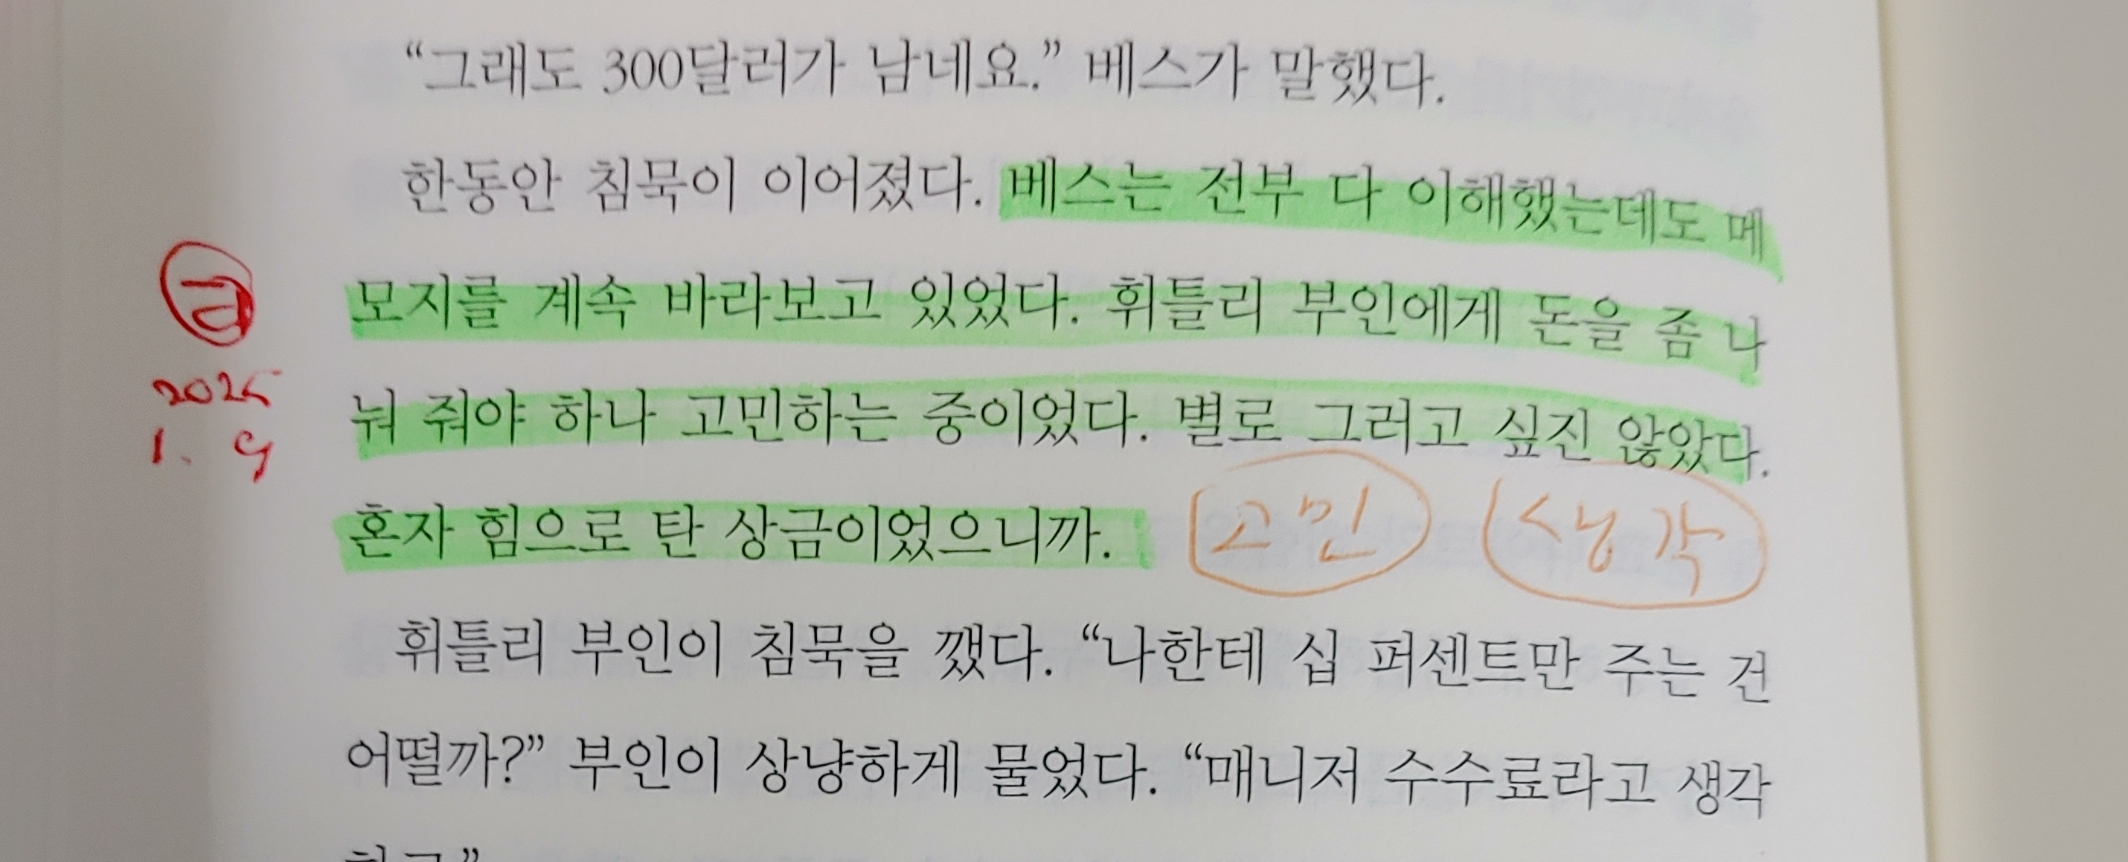 “그래도 300달러가 남네요.” 베스가 말했다.
한동안 침묵이 이어졌다. 베스는 전부 다 이해했는데도 메
모지를 계속 바라보고 있었다. 휘틀리 부인에게 돈을 좀 나
눠 줘야 하나 고민하는 중이었다. 별로 그러고 싶진 않았다.
2025
1. 9
혼자 힘으로 탄 상금이었으니까. 고민 생각
휘틀리 부인이 침묵을 깼다. “나한테 십 퍼센트만 주는 건
어떨까?” 부인이 상냥하게 물었다. “매니저 수수료라고 생각